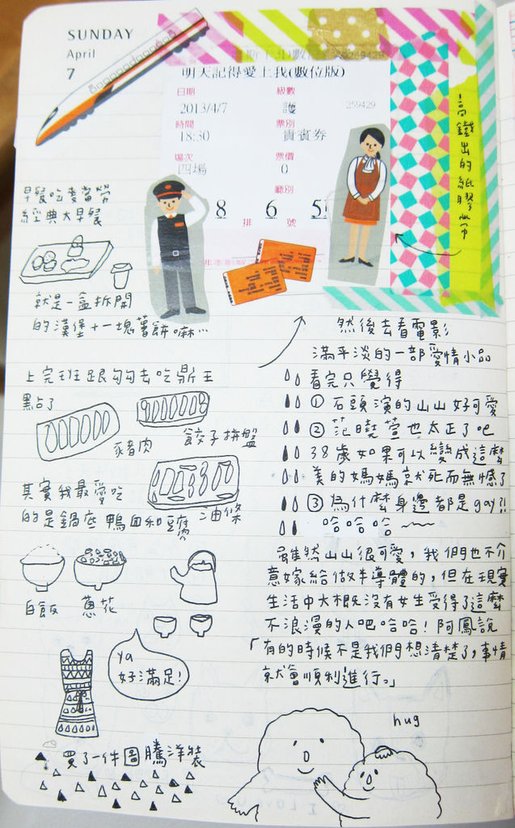 SUNDAY
April
7
明天記得愛上我(數位版)
日期
級數
2013/4/7
護
259429
時間
票別
18:30
貴賓券
場次
票價
四場
0
廳別
8
6
排
號
高鐵出的紙膠帶
早餐吃麥當勞
經典大早餐
就是一盒拆開
的漢堡+一塊薯餅嘛…
上完班跟勾勾去吃鼎王
點了
豬肉
餃子拼盤
其實我最愛吃
的是鍋底鴨血和豆腐
油條
白飯
蔥花
ya
好滿足!
買了一件圖騰洋裝
然後去看電影
滿平淡的一部愛情小品
看完只覺得
① 石頭演的山山好可愛
② 范曉萱也太正了吧
38歲如果可以變成這麼
美的媽媽就死而無憾了
③ 為什麼身邊都是gay?!
哈哈哈~~
雖然山山很可愛,我們也不介
意嫁給做半導體的,但在現實
生活中大概沒有女生受得了這麼
不浪漫的人吧哈哈!阿鳳說
「有的時候不是我們想清楚了,事情
就會順利進行。」
hug